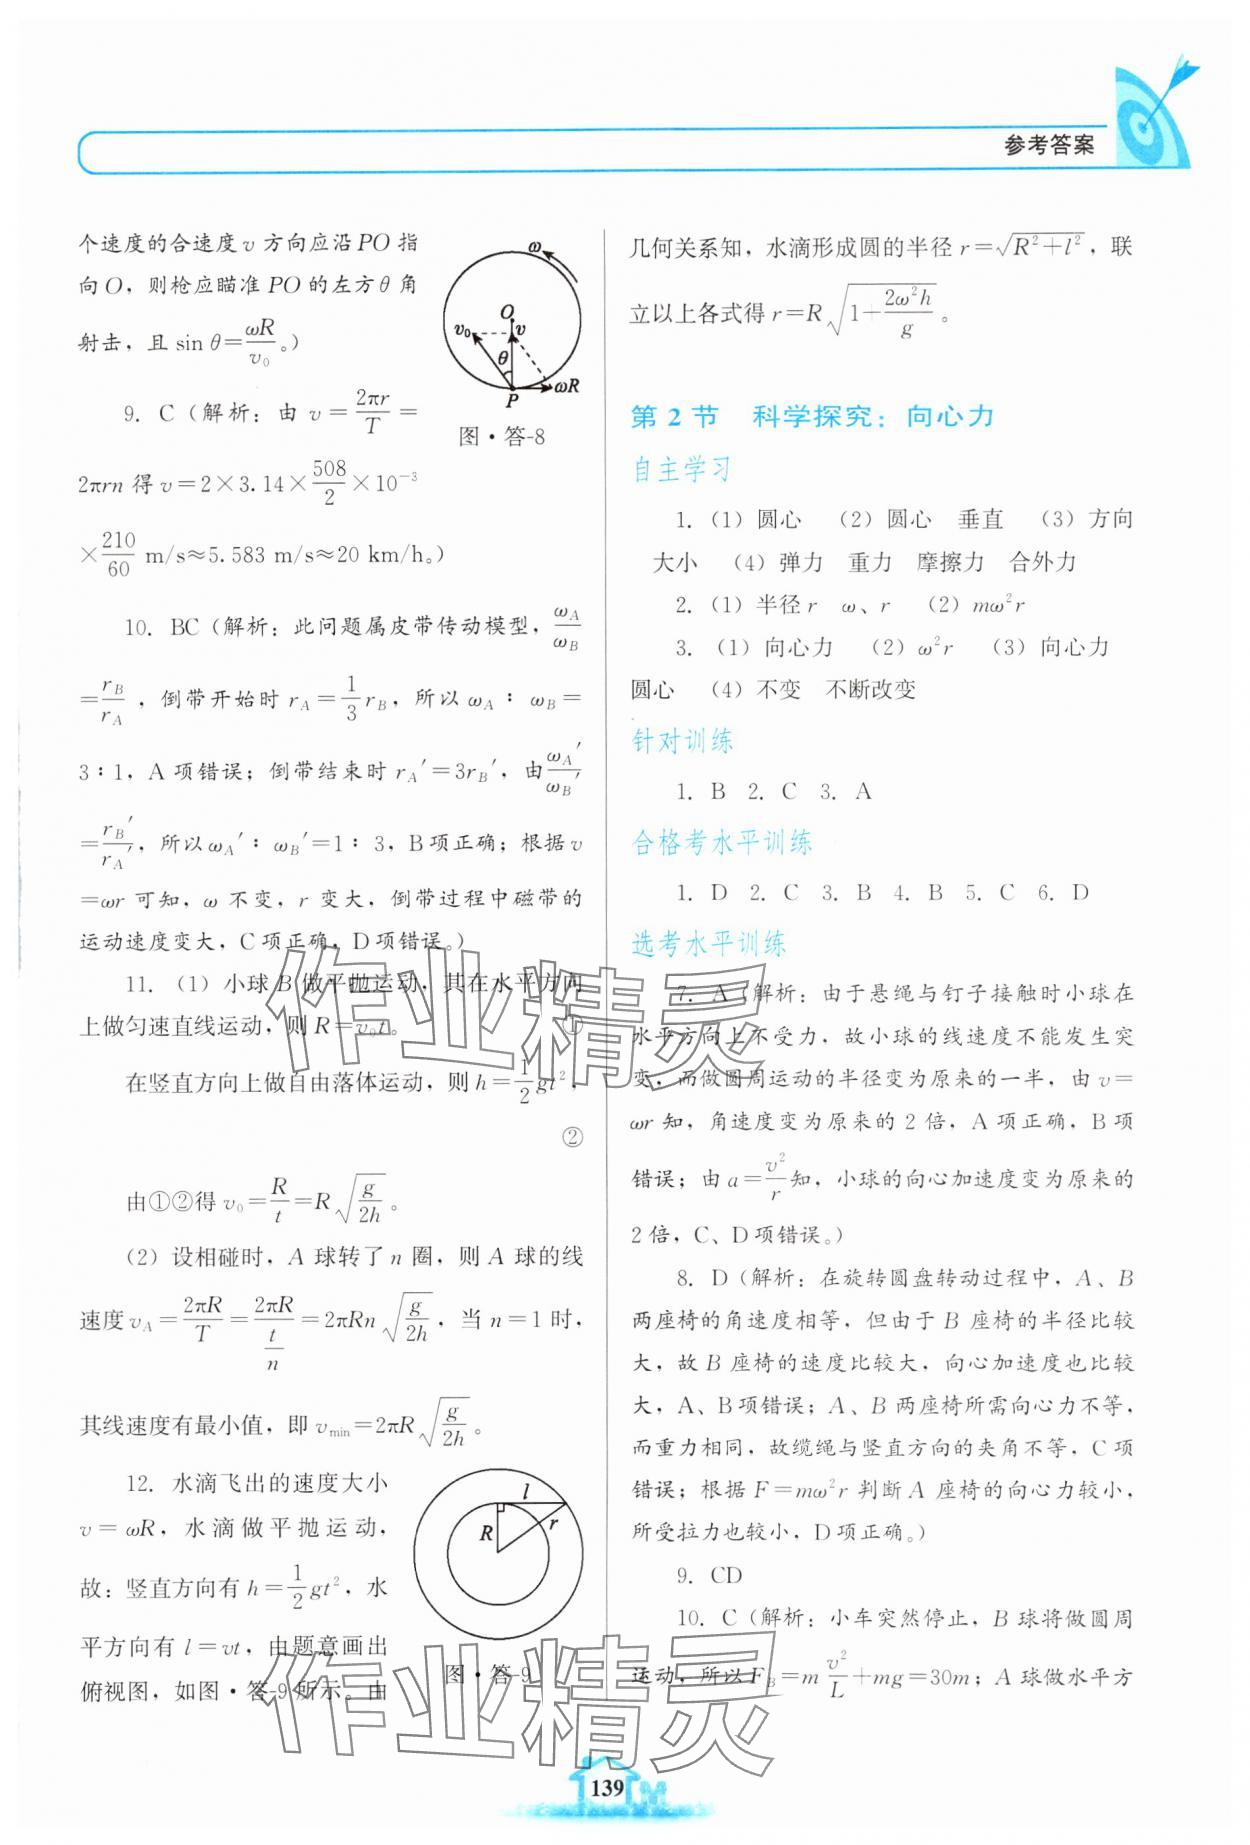 参考答案
个速度的合速度v方向应沿PO指
向O，则枪应瞄准PO的左方θ角
射击，且 sin θ=ωR/v₀。）
ω
O
v₀
v
θ
P
ωR
图·答-8
9. C（解析：由 v=2πr/T=
2πrn 得 v=2×3.14×508/2×10⁻³
×210/60 m/s≈5.583 m/s≈20 km/h。）
10. BC（解析：此问题属皮带传动模型，ω_A/ω_B
=r_B/r_A，倒带开始时 r_A=1/3 r_B，所以 ω_A∶ω_B=
3∶1，A项错误；倒带结束时 r_A′=3r_B′，由ω_A′/ω_B′
=r_B′/r_A′，所以 ω_A′∶ω_B′=1∶3，B项正确；根据 v
=ωr 可知，ω 不变，r 变大，倒带过程中磁带的
运动速度变大，C项正确，D项错误。）
11.（1）小球 B 做平抛运动，其在水平方向
上做匀速直线运动，则 R=v₀t。 ①
在竖直方向上做自由落体运动，则 h=1/2 gt²，
②
由①②得 v₀=R/t=R√(g/2h)。
（2）设相碰时，A 球转了 n 圈，则 A 球的线
速度 v_A=2πR/T=2πR/(t/n)=2πRn√(g/2h)，当 n=1 时，
其线速度有最小值，即 v_min=2πR√(g/2h)。
12. 水滴飞出的速度大小
v=ωR，水滴做平抛运动，
故：竖直方向有 h=1/2 gt²，水
平方向有 l=vt，由题意画出
俯视图，如图·答-9 所示。由
l
R
r
图·答-9
几何关系知，水滴形成圆的半径 r=√(R²+l²)，联
立以上各式得 r=R√(1+2ω²h/g)。
第2节 科学探究：向心力
自主学习
1.（1）圆心 （2）圆心 垂直 （3）方向
大小 （4）弹力 重力 摩擦力 合外力
2.（1）半径 r ω、r （2）mω²r
3.（1）向心力 （2）ω²r （3）向心力
圆心 （4）不变 不断改变
针对训练
1. B 2. C 3. A
合格考水平训练
1. D 2. C 3. B 4. B 5. C 6. D
选考水平训练
7. A（解析：由于悬绳与钉子接触时小球在
水平方向上不受力，故小球的线速度不能发生突
变，而做圆周运动的半径变为原来的一半，由 v=
ωr 知，角速度变为原来的 2 倍，A 项正确，B 项
错误；由 a=v²/r 知，小球的向心加速度变为原来的
2 倍，C、D 项错误。）
8. D（解析：在旋转圆盘转动过程中，A、B
两座椅的角速度相等，但由于 B 座椅的半径比较
大，故 B 座椅的速度比较大，向心加速度也比较
大，A、B项错误；A、B 两座椅所需向心力不等，
而重力相同，故缆绳与竖直方向的夹角不等，C 项
错误；根据 F=mω²r 判断 A 座椅的向心力较小，
所受拉力也较小，D 项正确。）
9. CD
10. C（解析：小车突然停止，B 球将做圆周
运动，所以 F_B=m v²/L+mg=30m；A 球做水平方
作业精灵
作业精灵
139